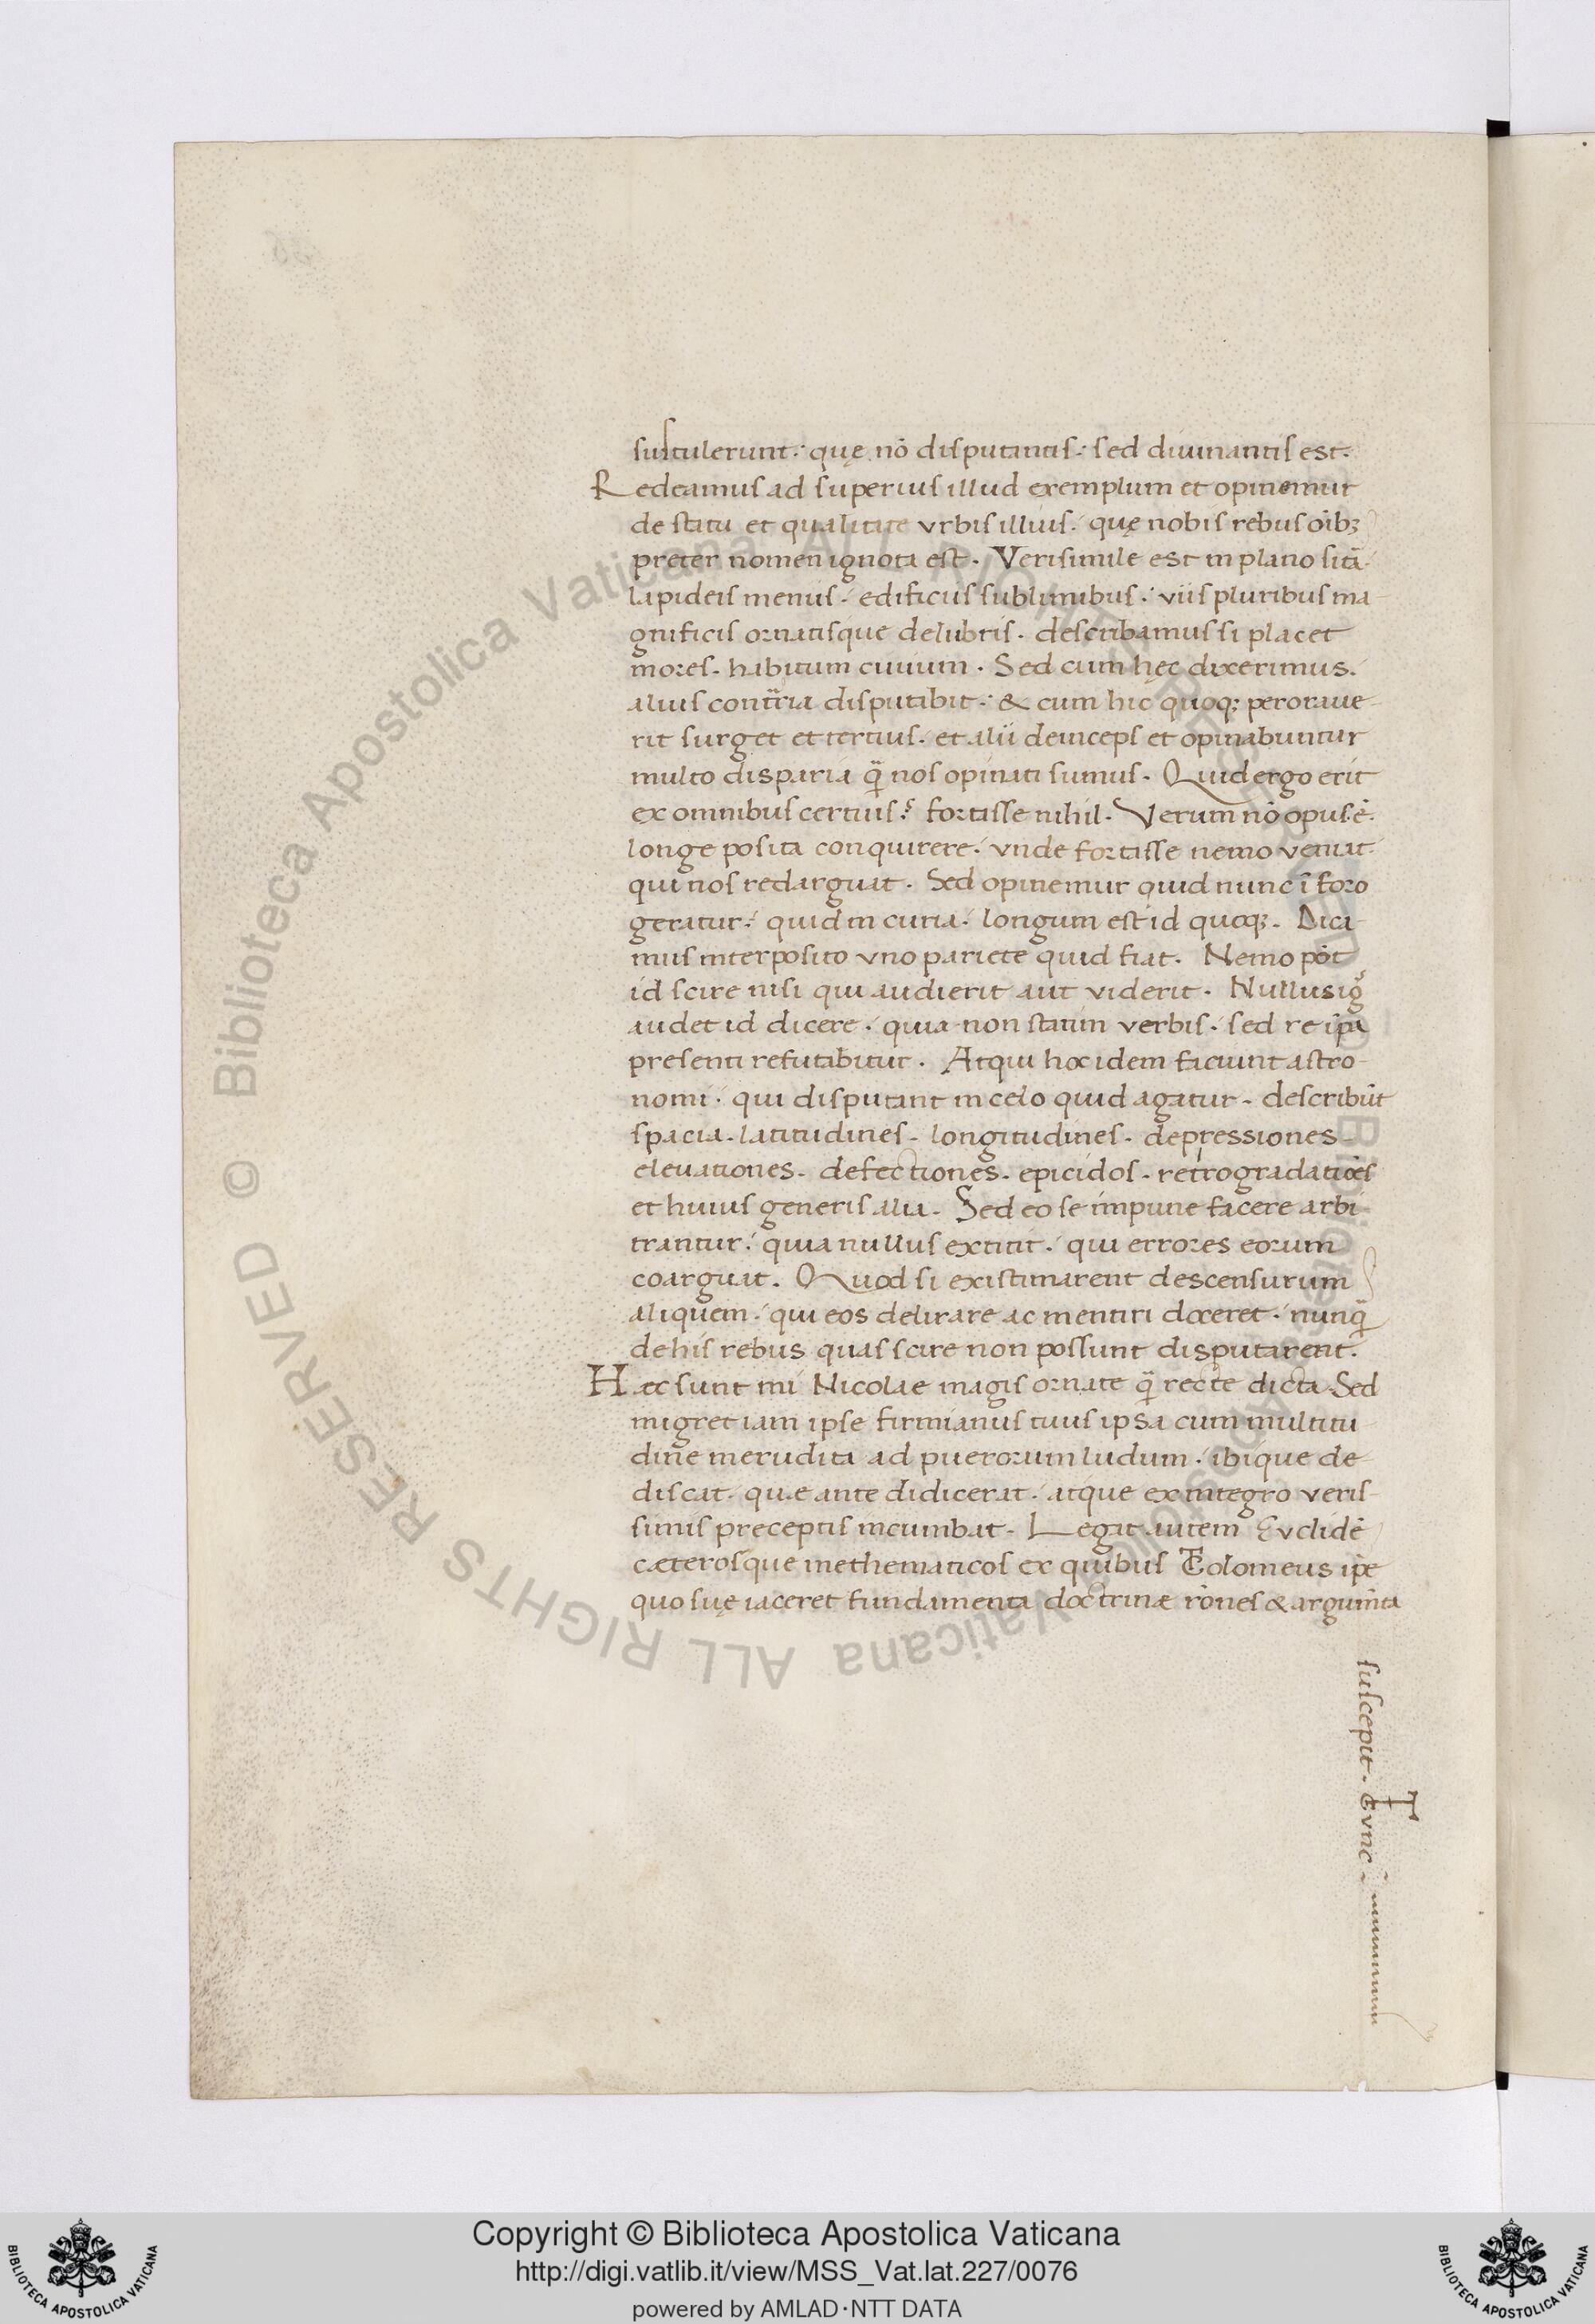 sustulerunt. quę nō disputantis. sed diuinantis est.
Redeamus ad superius illud exemplum et opinemur
de statu et qualitate vrbis illius. quę nobis rebus oībꝫ
preter nomen ignota est. Verisimile est in plano sitā.
lapideis meniis. edificiis sublimibus. viis pluribus ma-
gnificis ornatisque delubris. describamus si placet
mores. habitum ciuium. Sed cum hęc dixerimus.
alius contr̄ia disputabit. & cum hic quoqꝫ peroraue-
rit surget et tertius. et alii deinceps et opinabuntur
multo disparia q̄ nos opinati sumus. Quid ergo erit
ex omnibus certius? fortasse nihil. Verum nō opus ē.
longe posita conquirere. vnde fortasse nemo veniat.
qui nos redarguat. Sed opinemur quid nunc ī foro
geratur. quid in curia. longum est id quoqꝫ. Dica-
mus interposito vno pariete quid fiat. Nemo pōt
id scire nisi qui audierit aut viderit. Nullus ig̊
audet id dicere. quia non statim verbis. sed re ip̄a
presenti refutabitur. Atqui hoc idem faciunt astro-
nomi. qui disputant in celo quid agatur. describūt
spacia. latitudines. longitudines. depressiones.
eleuationes. defectiones. epiciclos. retrogradatiōes
et huius generis alia. Sed eo se impune facere arbi-
trantur. quia nullus extitit. qui errores eorum
coarguat. Quod si existimarent descensurum
aliquem. qui eos delirare ac mentiri doceret. nunq̄
de his rebus quas scire non possunt disputarent.
Hæc sunt mi Nicolae magis ornate q̄ recte dicta. Sed
migret iam ipse firmianus tuus ipsa cum multitu-
dine inerudita ad puerorum ludum. ibique de-
discat. quæ ante didicerat. atque ex integro veris-
simis preceptis incumbat. Legat autem Euclidē
cæterosque methematicos ex quibus Tolomeus ip̄e
quo suę iaceret fundamenta doctrinæ rōnes & argum̄ta
suscepit. Tvnc
T
Copyright © Biblioteca Apostolica Vaticana
http://digi.vatlib.it/view/MSS_Vat.lat.227/0076
powered by AMLAD·NTT DATA
BIBLIOTECA APOSTOLICA VATICANA
BIBLIOTECA APOSTOLICA VATICANA
© Biblioteca Apostolica Vaticana ALL RIGHTS RESERVED
© Biblioteca Apostolica Vaticana ALL RIGHTS RESERVED